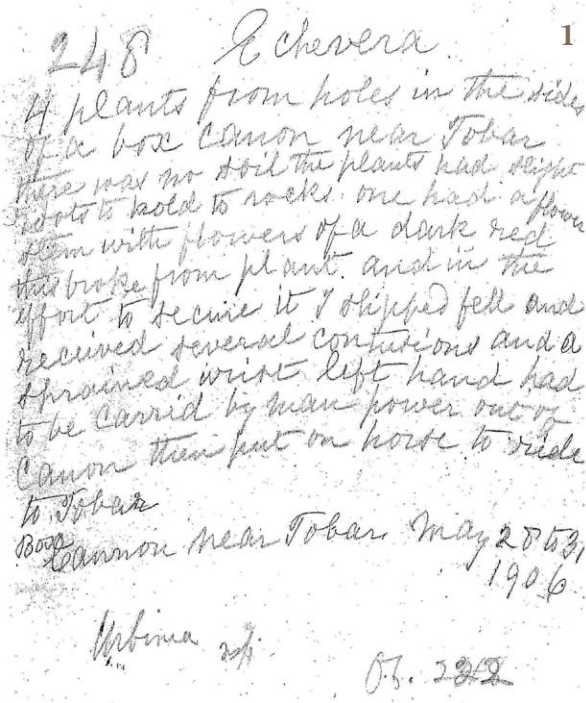 1
248 Echevera
4 plants from holes in the sides
of a box Canon near Tobar
there was no soil the plants had slight
roots to hold to rocks. one had a flower
stem with flowers of a dark red
this broke from plant. and in the
effort to secure it I slipped fell and
received several contusions and a
sprained wrist left hand had
to be carrid by man power out of
Canon then put on horse to ride
to Tobar
Box
Cannon near Tobar. May 28 to 31
1906.
Urbinia sp.